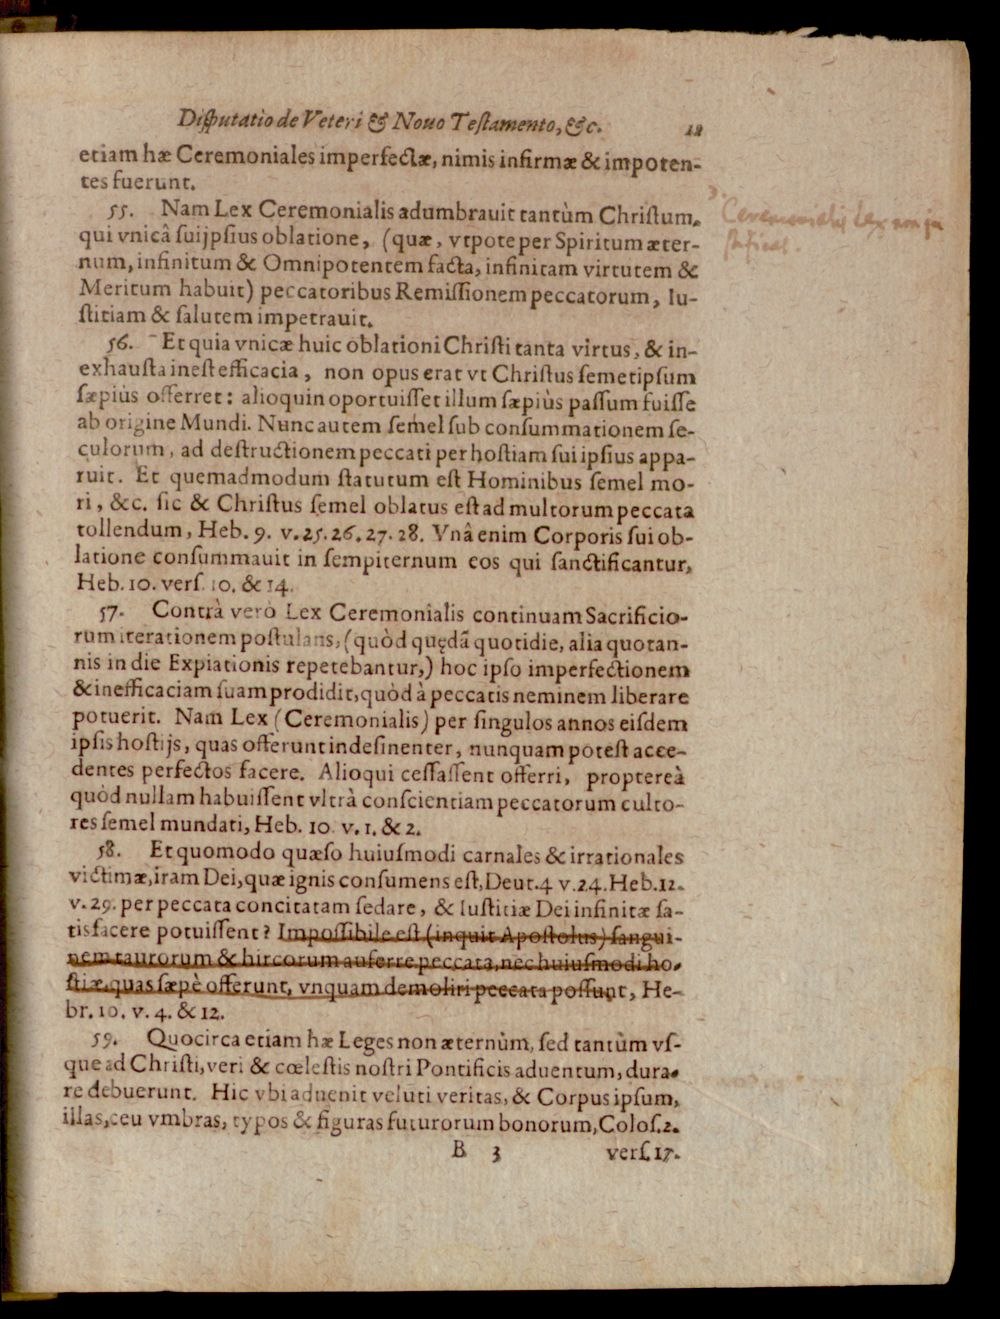 Disputatio de Veteri & Nouo Testamento, &c.
etiam hæ Ceremoniales imperfectæ, nimis infirmæ & impoten-
tes fuerunt.
55. Nam Lex Ceremonialis adumbrauit tantùm Christum,
qui vnicâ suijpsius oblatione, (quæ, vtpote per Spiritum æter-
num, infinitum & Omnipotentem facta, infinitam virtutem &
Meritum habuit) peccatoribus Remissionem peccatorum, Iu-
stitiam & salutem impetrauit.
Ceremonialis Lex non ju
stificat.
56. Et quia vnicæ huic oblationi Christi tanta virtus, & in-
exhausta inest efficacia, non opus erat vt Christus semetipsum
sæpiùs offerret: alioquin oportuisset illum sæpiùs passum fuisse
ab origine Mundi. Nunc autem semel sub consummationem se-
culorum, ad destructionem peccati per hostiam sui ipsius appa-
ruit. Et quemadmodum statutum est Hominibus semel mo-
ri, &c. sic & Christus semel oblatus est ad multorum peccata
tollendum, Heb. 9. v. 25. 26. 27. 28. Vnâ enim Corporis sui ob-
latione consummauit in sempiternum eos qui sanctificantur,
Heb. 10. vers. 10. & 14.
57. Contrà verò Lex Ceremonialis continuam Sacrificio-
rum iterationem postulans, (quòd quędã quotidie, alia quotan-
nis in die Expiationis repetebantur,) hoc ipso imperfectionem
& inefficaciam suam prodidit, quòd à peccatis neminem liberare
potuerit. Nam Lex (Ceremonialis) per singulos annos eisdem
ipsis hostijs, quas offerunt indesinenter, nunquam potest acce-
dentes perfectos facere. Alioqui cessassent offerri, proptereà
quòd nullam habuissent vltrà conscientiam peccatorum culto-
res semel mundati, Heb. 10. v. 1. & 2.
58. Et quomodo quæso huiusmodi carnales & irrationales
victimæ, iram Dei, quæ ignis consumens est, Deut. 4 v. 24. Heb. 12.
v. 29. per peccata concitatam sedare, & Iustitiæ Dei infinitæ sa-
tisfacere potuissent? Impossibile est (inquit Apostolus) sangui-
nem taurorum & hircorum auferre peccata, nec huiusmodi ho-
stiæ, quas sæpè offerunt, vnquam demoliri peccata possunt, He-
br. 10. v. 4. & 12.
59. Quocirca etiam hæ Leges non æternùm, sed tantùm vs-
que ad Christi, veri & cœlestis nostri Pontificis aduentum, dura-
re debuerunt. Hic vbi aduenit veluti veritas, & Corpus ipsum,
illas, ceu vmbras, typos & figuras futurorum bonorum, Colos. 2.
B 3 vers. 17.